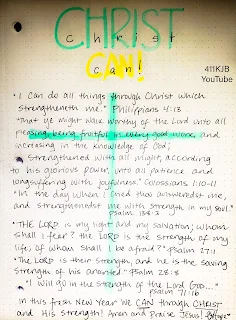 CHRIST
christ
can!
411KJB
YouTube
"I can do all things through Christ which
strengtheneth me." Philippians 4:13
"That ye might walk worthy of the Lord unto all
pleasing, being fruitful in every good work, and
increasing in the knowledge of God;
Strengthened with all might, according
to his glorious power, unto all patience and
longsuffering with joyfulness." Colossians 1:10-11
"In the day when I cried thou answeredst me,
and strengthenedst me with strength in my soul."
psalm 138:3
"THE LORD is my light and my salvation; whom
shall I fear? the LORD is the strength of my
life; of whom shall I be afraid?" Psalm 27:1
"The LORD is their strength, and he is the saving
strength of his anointed." Psalm 28:8
"I will go in the strength of the Lord GOD..."
psalm 71:16
In this fresh New Year We CAN through CHRIST
and His strength! Amen and Praise Jesus!